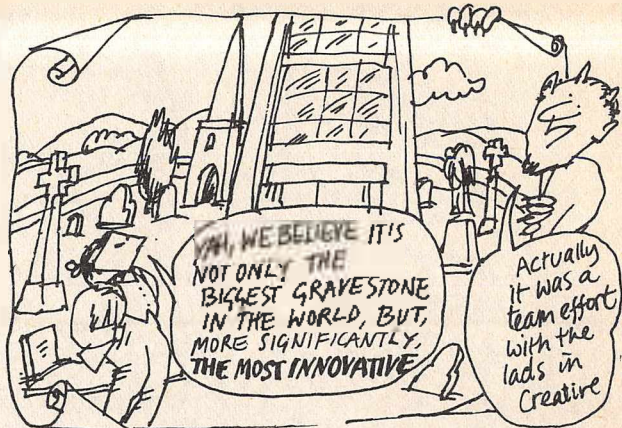 WE BELIEVE IT'S
NOT ONLY THE
BIGGEST GRAVESTONE
IN THE WORLD, BUT,
MORE SIGNIFICANTLY,
THE MOST INNOVATIVE
Actually
it was a
team effort
with the
lads in
Creative